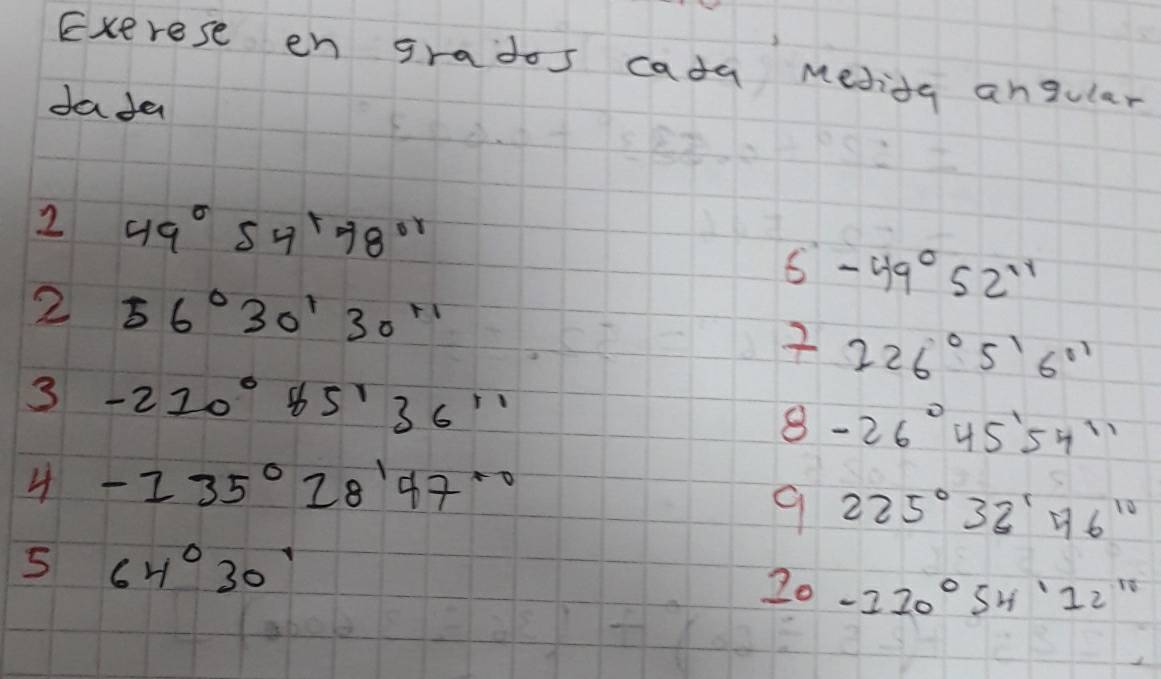 Exerese en grados cada medida angular
dada
1 49° 54' 48"
2 56° 30' 30"
3 -210° 85' 36"
4 -135° 18' 47"
5 64° 30'
6 -49° 52"
7 126° 5' 6"
8 -26° 45' 54"
9 225° 32' 46"
10 -110° 54' 12"